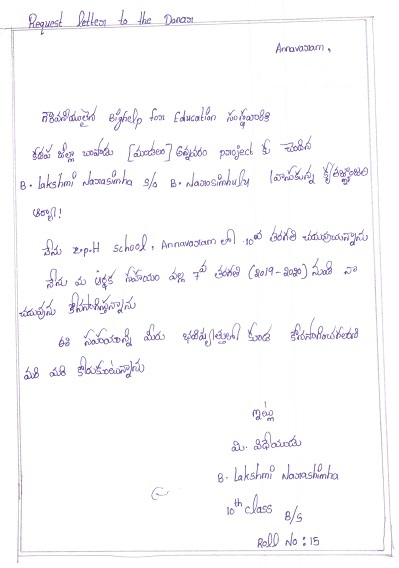 Request letter to the Donar
Annavaram,
గౌరవనీయులైన Bighelp for Education సంస్థవారికి
కడప జిల్లా [మండలం] అన్నవరం project కు చెందిన
B. Lakshmi Narasimha S/o B. Narasimhulu వ్రాసుకున్న
ఆర్యా!
నేను z.p.H school, Annavaram లో 10వ తరగతి చదువుచున్నాను
నేను మీ ఆర్థిక సహాయం వల్ల 7వ తరగతి (2019-2020) నుండి నా
చదువును కొనసాగిస్తున్నాను
ఈ సహాయాన్ని మీరు భవిష్యత్తులో కుడా కొనసాగించగలరని
మరి మరి కోరుకుంటున్నాను
ఇట్లు
మి. విధేయుడు
B. Lakshmi Narashimha
10th class B/S
Roll No: 15